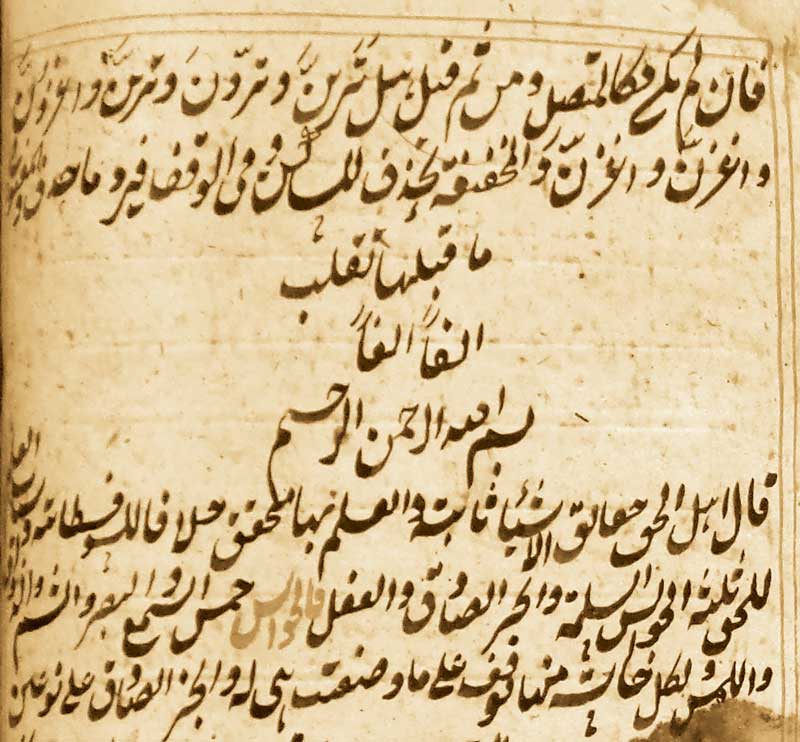 فان لم يكن فكالمتصل ومن ثم قيل هل ترين وترون وترين واغزون
واغزن واغزن والمخففة تحذف للساكن وفي الوقف فيرد ما حذف والمفتوح
ما قبلها تقلب
الفا الفا
بسم الله الرحمن الرحيم
قال اهل الحق حقايق الاشياء ثابتة والعلم بها متحقق خلافا للسوفسطائية
للخلق ثلثة الحواس السليمة والخبر الصادق والعقل فالحواس خمس السمع والبصر والشم والذوق
واللمس وبكل حاسة منها توقف على ما وضعت هى له والخبر الصادق على نوعين